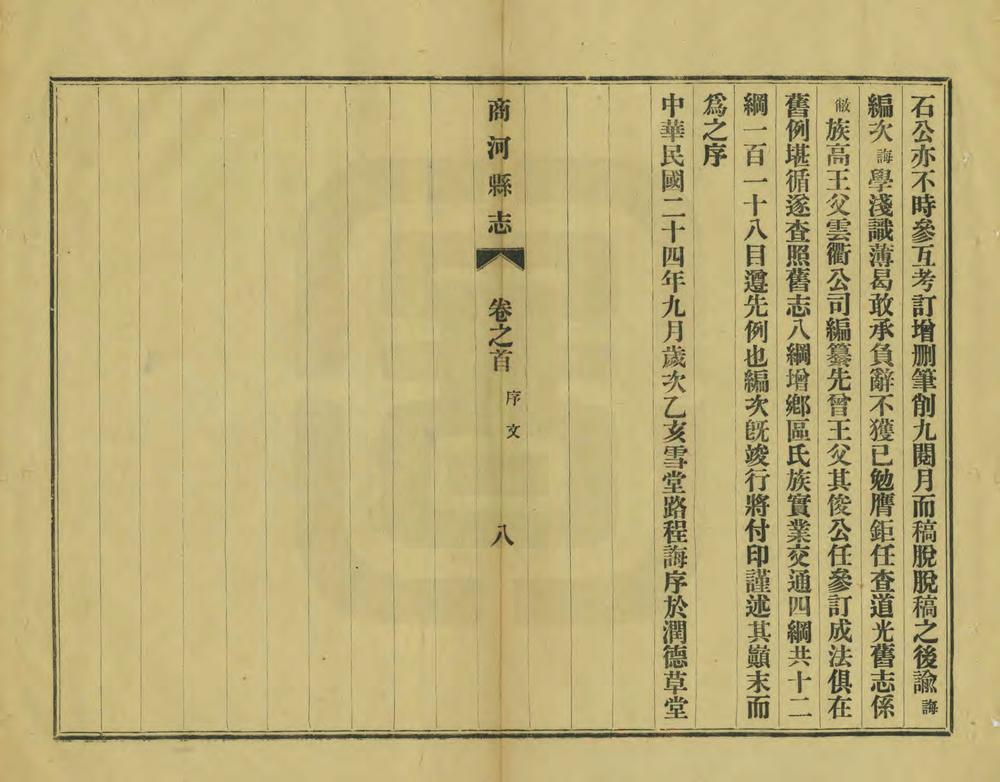 石公亦不時參互考訂增刪筆削九閱月而稿脫脫稿之後諭誨
編次誨學淺識薄曷敢承負辭不獲已勉膺鉅任查道光舊志係
敝族高王父雲衢公司編纂先曾王父其俊公任參訂成法俱在
舊例堪循遂查照舊志八綱增鄉區氏族實業交通四綱共十二
綱一百一十八目遵先例也編次既竣行將付印謹述其顚末而
爲之序
中華民國二十四年九月歲次乙亥雪堂路程誨序於潤德草堂
商河縣志 卷之首 序文 八